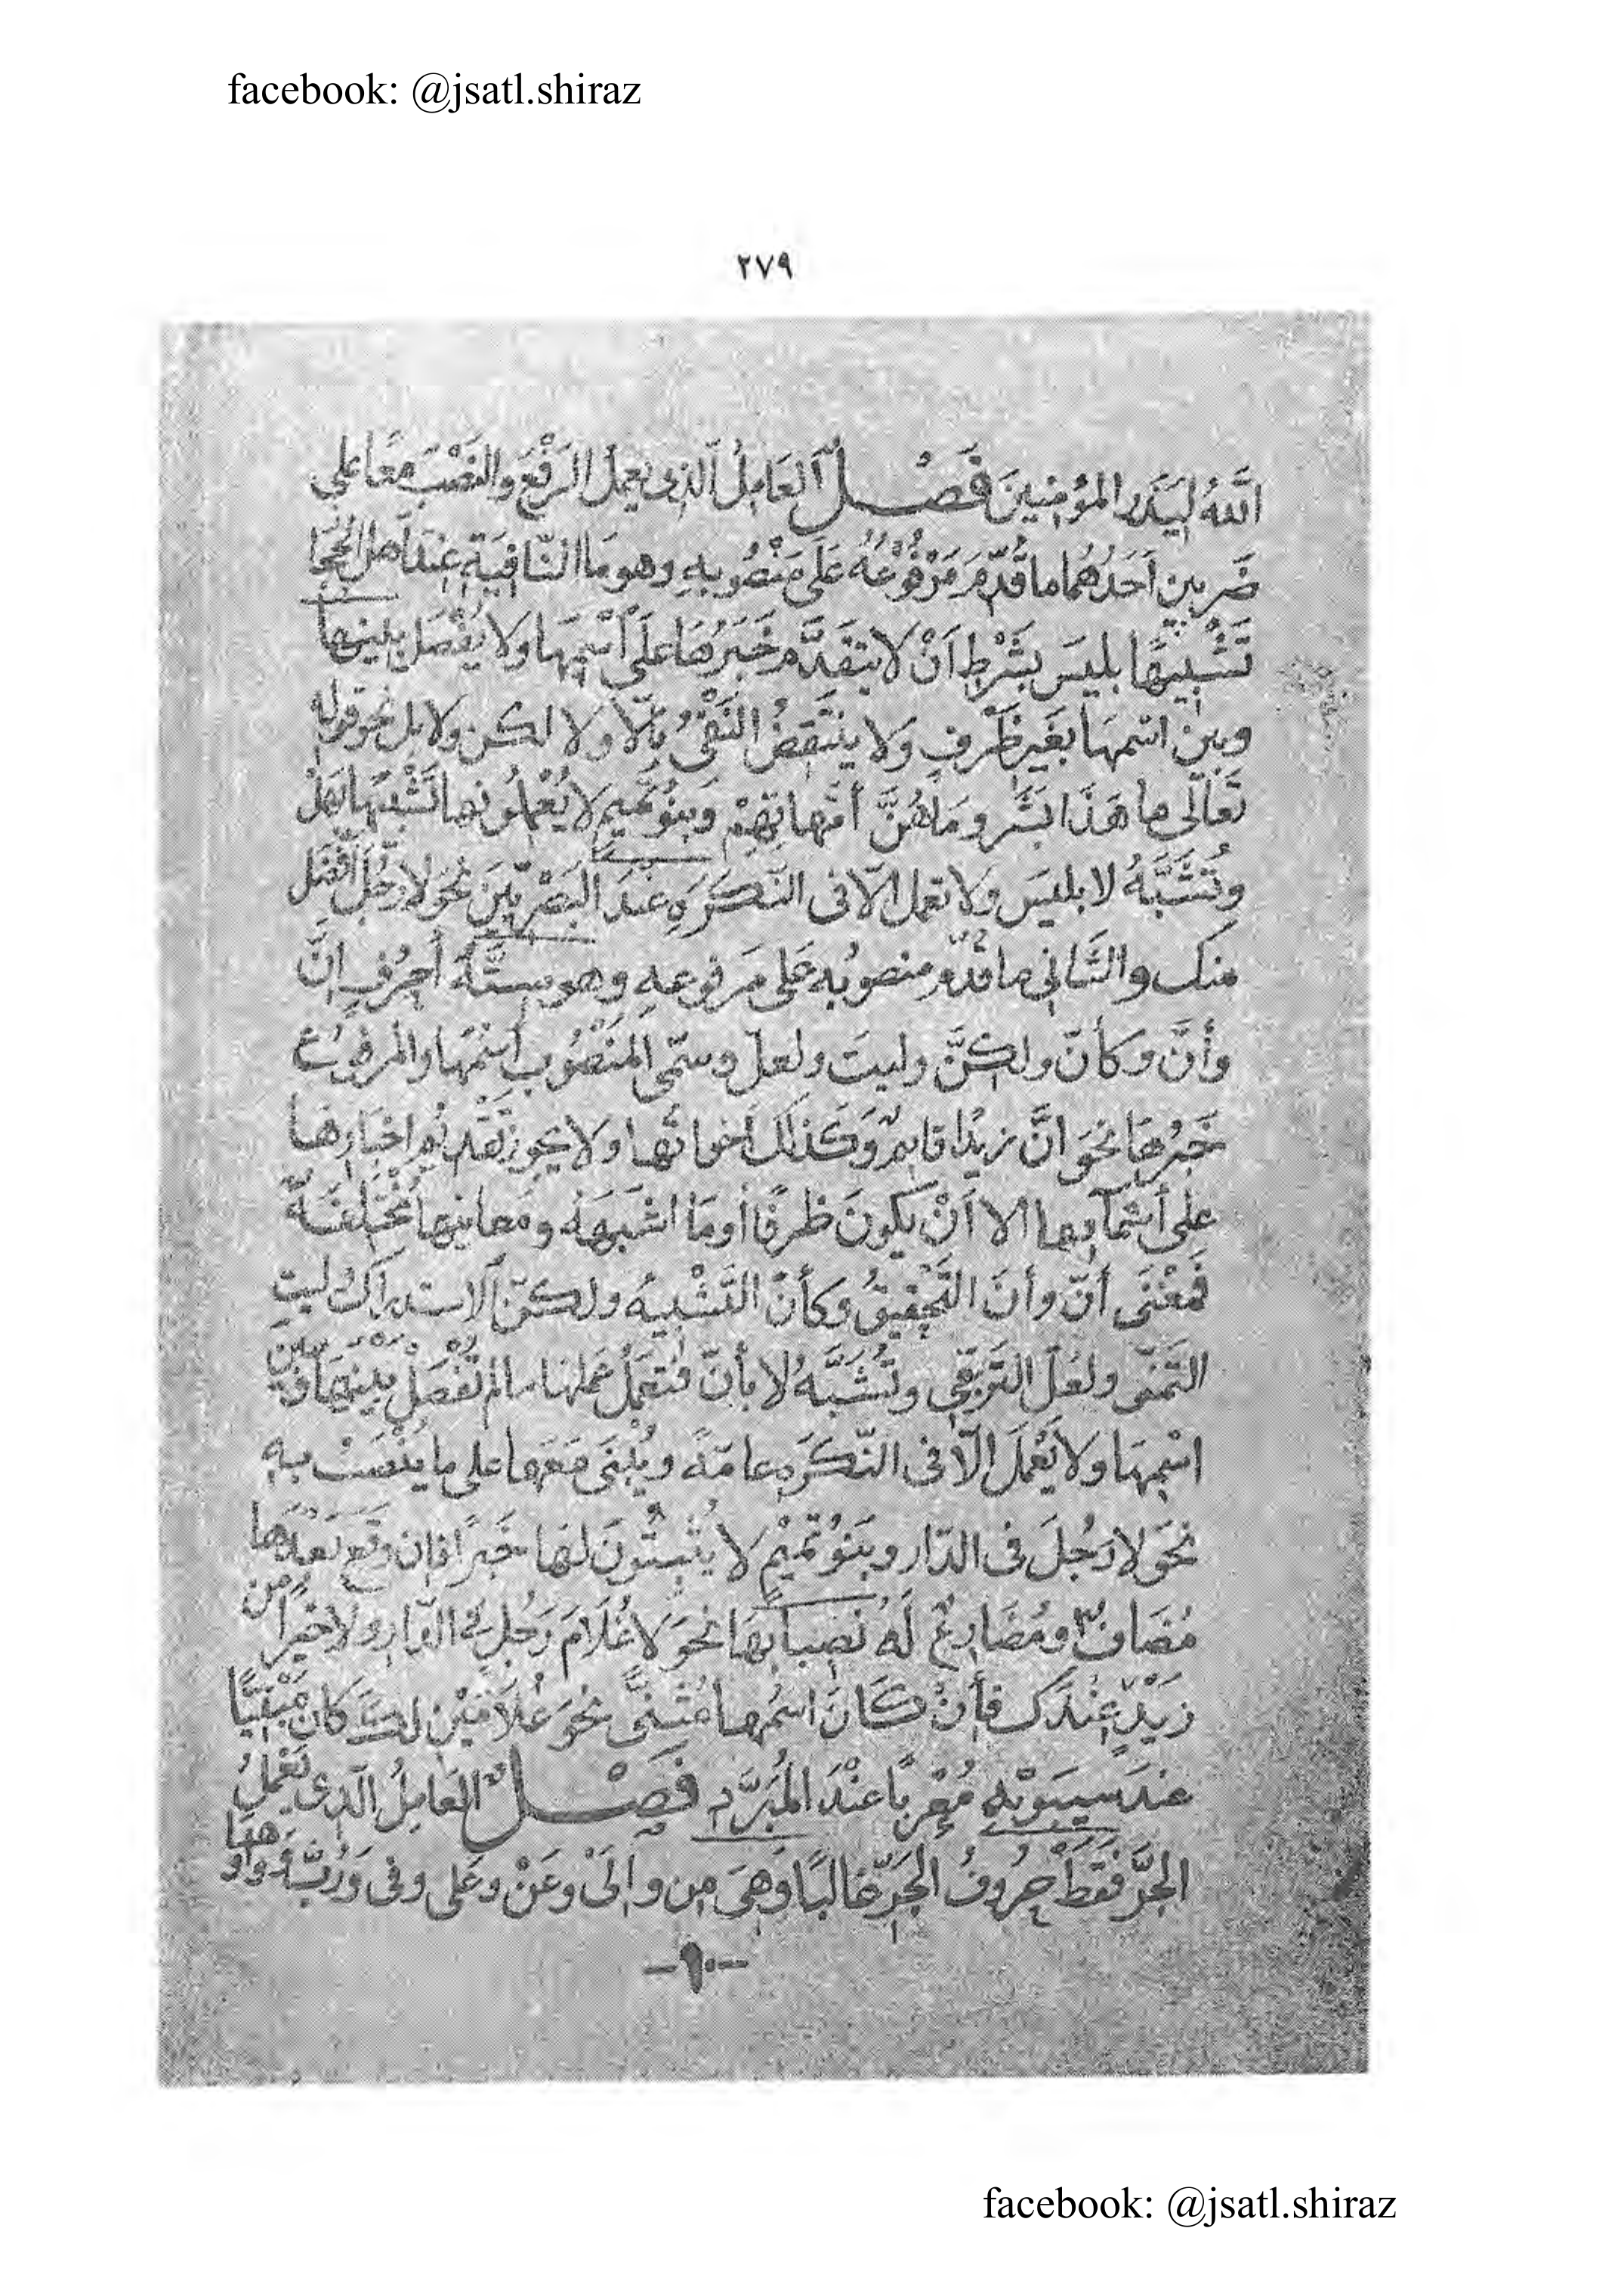 facebook: @jsatl.shiraz
٢٧٩
اللّٰهُ لِيَذَرَ المؤمِنِينَ فَصْـــل اَلعَامِلُ اَلّذى يعمل الرَفْعَ والنَصْبَ مَعًا على
ضَربين اَحَدُهُما ما قُدِّمَ مَرْفُوعُهُ عَلَى مَنْصُوبِهِ وهو مَا النّافِيَةِ عِندَ اَهل الحِجا
تَشْبِيهًا بليسَ بشَرْطِ اَنْ لا يتقدَّم خَبَرُهَا علَى اسْمِهَا ولا يُفْصَل بينها
وبين اسْمِهَا بغَير ظَرْفٍ وَلا ينتَقِضُ النَفْىُ بِاِلّا وَلا لكن ولا بل نحو قوله
تعَالَى ما هَذَا بَشَر وَمَا هُنَّ أمّهاتِهِمْ وَبنُو تَميم لا يُعْمِلُونها تَشْبِيهًا بهَلْ
وتُشَبَّهُ لا بليسَ ولا تعمل الّا فى النّكَرَةِ عَندَ البَصْرِيّينَ نحو لا رَجُلٌ اَفْضَل
منك والثَانِى ما قُدّم منصوُبه عَلى مَرفوعهِ وهو سِتَّةُ أحرُفٍ اِنَّ
وأنَّ وكأنّ ولكِنَّ وليتَ ولعلّ وسمّى المَنْصُوب اسْمَهَا والمرفُوع
خَبَرُهَا نحوَ انَّ زيدًا قايمٌ وَكَذلك اَخواتها ولا يجوز تَقْديُم اخبَارِهَا
على أسْمآئها الا اَنْ يكونَ ظرفًا أومَا اشْبَهَهُ ومَعانيها مُخْتَلِفَةٌ
فَمَعْنَى أنّ وأنّ التَحْقِيقُ وكأنّ التَشْبِيهُ ولكنّ الاستدراكُ وليتَ
التَمَنّى ولعَلّ التَرَجّى وتُشَبَّهُ لا بأنّ فتَعمَلُ عَمَلهَا ما لم تُفْصَلْ بَيْنَهَا وَبين
اسْمِهَا ولا يَعْمَلُ اِلّا فى النّكَرَةِ عامّةً ويُبْنَى مَعَها على ما يُنْصَبُ به
نحَوَ لا رَجُلَ فى الدّار وبَنُو تَميْمٍ لا يُثْبِتُونَ لهَا خَبَرًا فاِن وقَع بَعْدَهَا
مُضَافٌ ومُضَارِعٌ لَهُ نُصِبَا بِهَا نحوَ لَا غُلَامَ رَجُلٍ فى الدّار ولا خَيْرًا من
زَيْدٍ عِنْدَكَ فأِنْ كَانَ اسْمُها مُثَنًّى نحوَ غُلَامَيْن لكَ كَانَ مَبْنِيًّا
عندَ سيبَويْهِ مُعْرَبًا عنْدَ المُبَرَّدِ فَصْـــل العَامِلُ الّذى يَعْمَلُ
الجَرَّ فَقَطْ حُرُوفُ الجَرّ غالبًا وَهِىَ مِن واِلَى وعَنْ وعَلى وفى وَرُبَّ وواوها
–٩٠–
facebook: @jsatl.shiraz